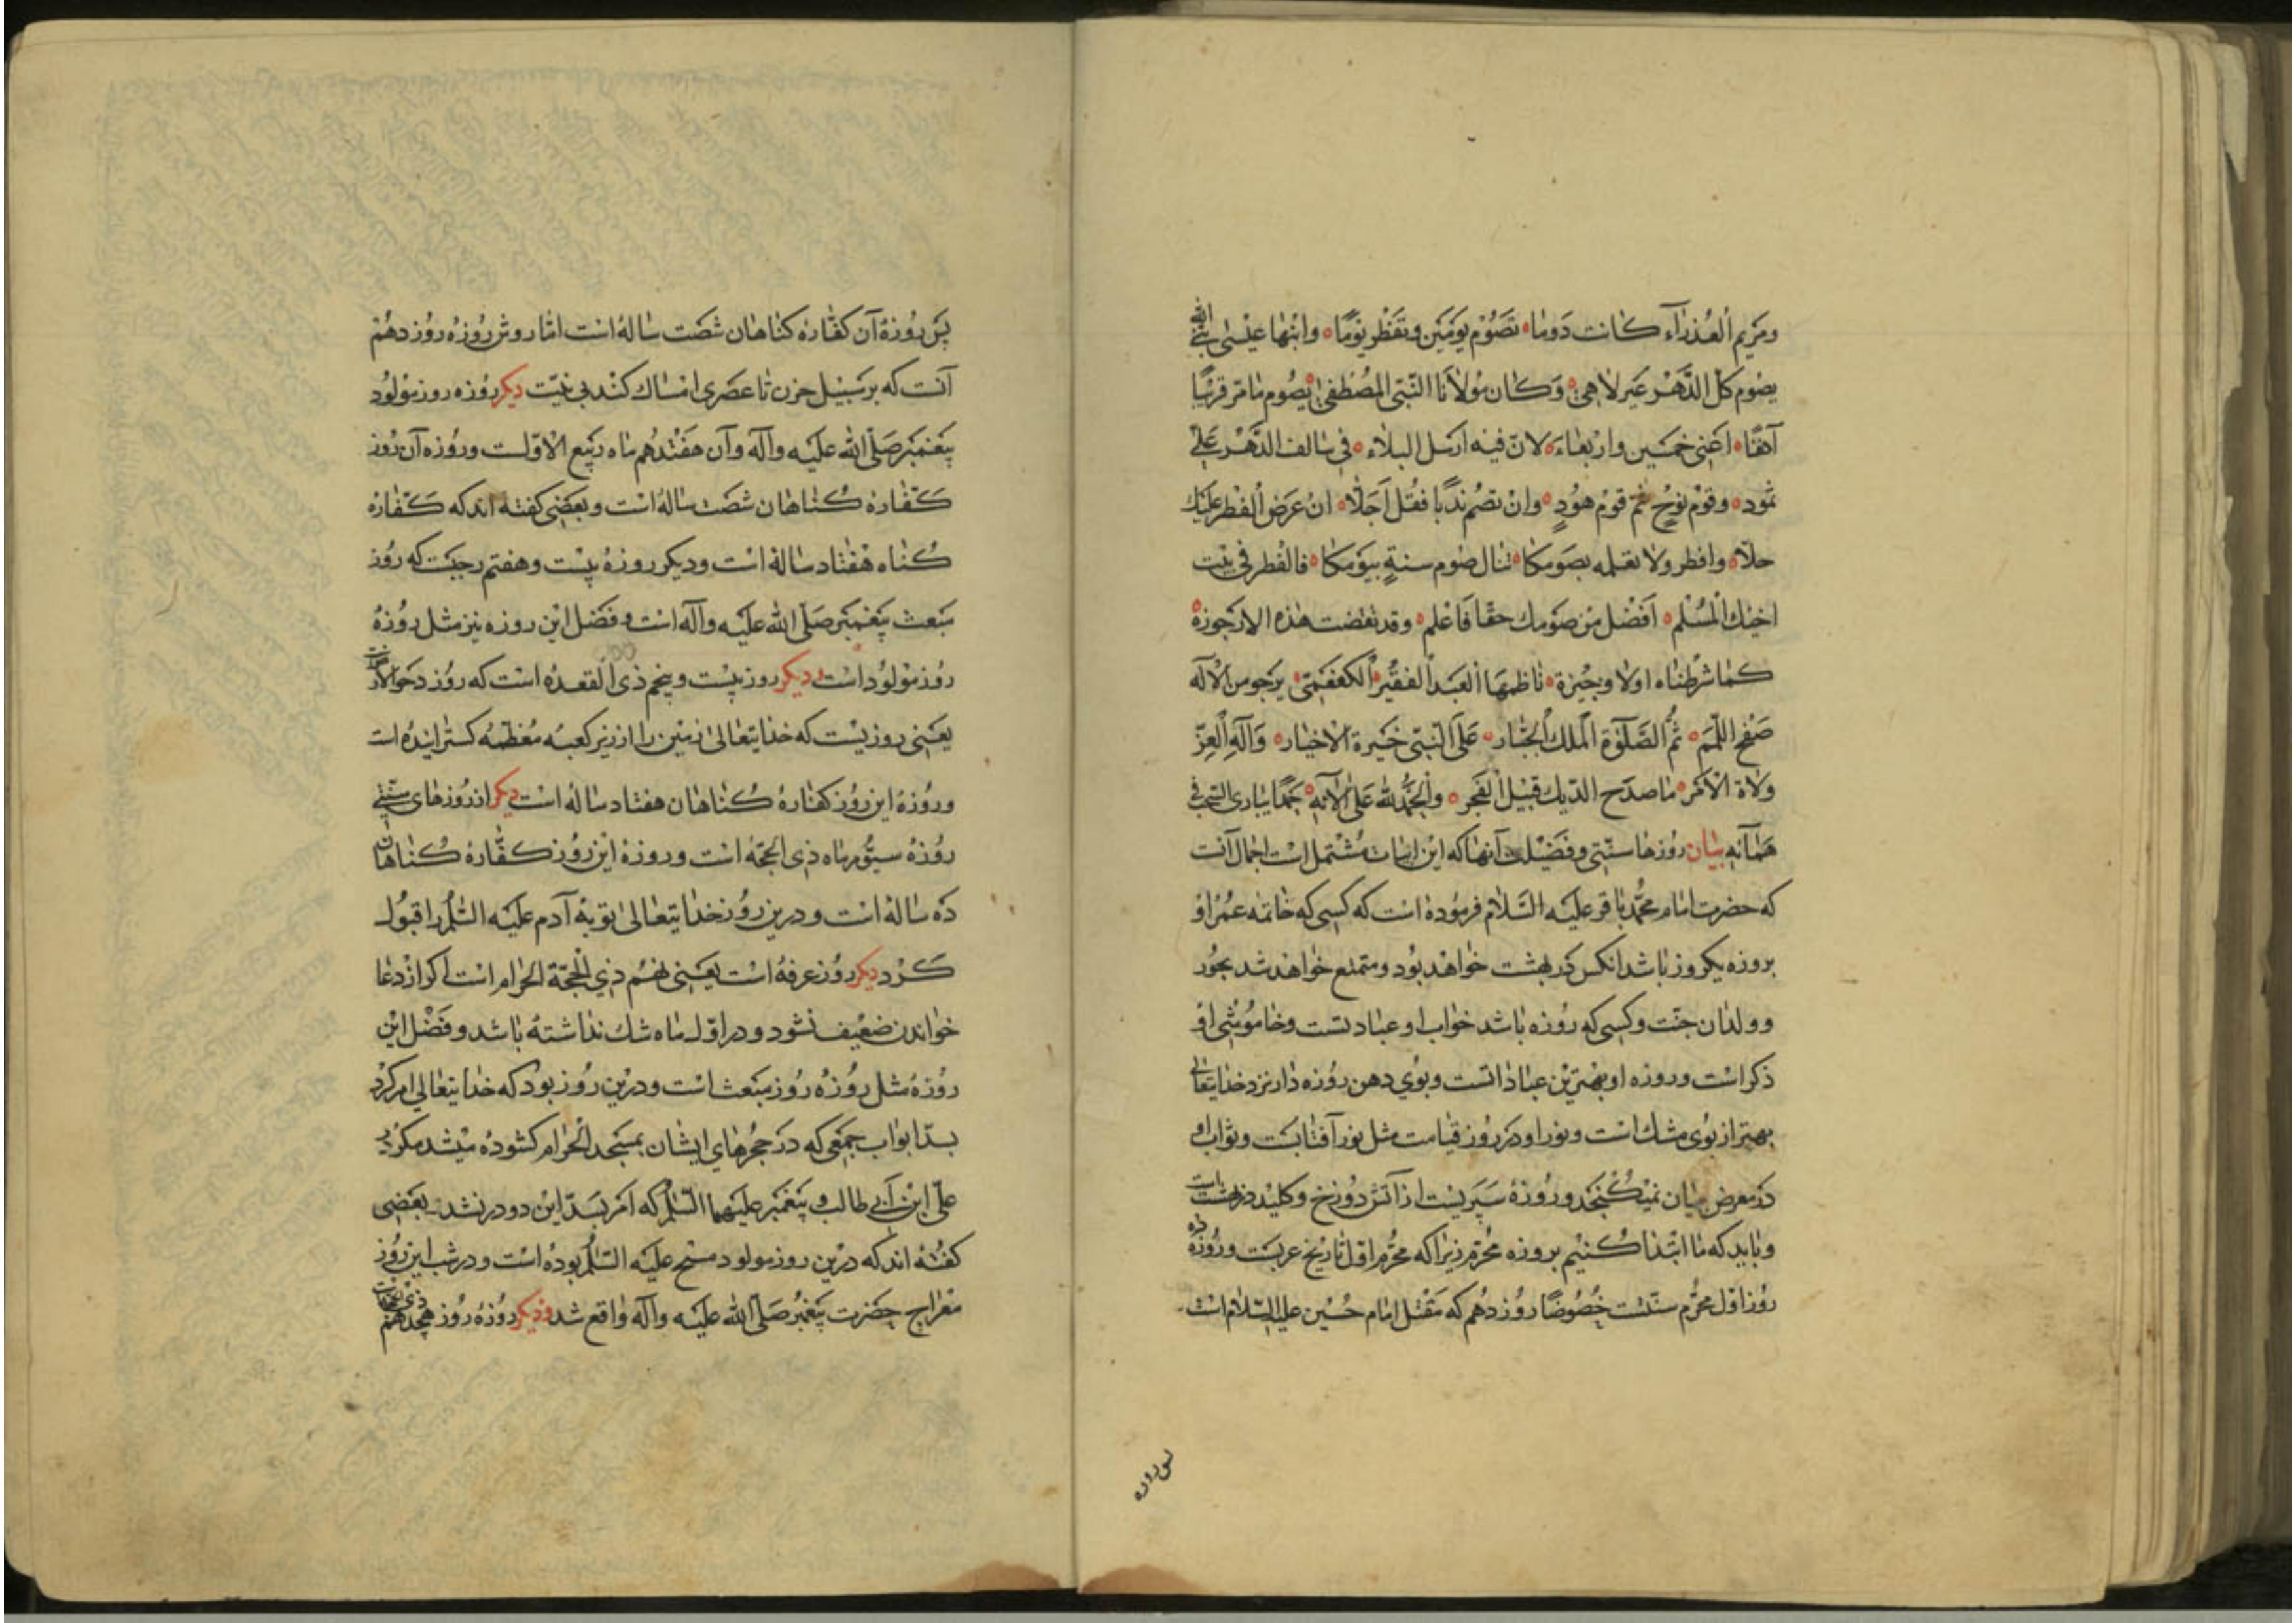 ومريم العذراء كانت دوما تصوم يومين وتفطر يوما وابنها عيسى نبي الله
يصوم كل الدهر غير لاهي وكان مولانا النبي المصطفى يصوم ما مر قريبا
آنفا اعني خميسين واربعاء لان فيه ارسل البلاء في سالف الدهر على
ثمود وقوم نوح ثم قوم هود وان تصم ندبا فقل اجلا ان عرض الفطر عليك
حلا وافطر ولا تعلمه بصومكا تنال صوم سنة بيومكا فالفطر في بيت
اخيك المسلم افضل من صومك حقا فاعلم وقد تقضت هذه الارجوزة
كما شرطناه اولا وجيزة ناظمها العبد الفقير الكفعمي يرجو من الاله
صفح اللمم ثم الصلوة الملك الجبار على النبي خيرة الاخيار وآله العز
ولاة الامر ما صدح الديك قبيل الفجر والحمد لله على آلائه حمدا يباري السحب في
همآئه بيان روزها سنتي وفضيلت آنها كه اين ابيات مشتمل است اجمال آنست
كه حضرت امام محمد باقر عليه السلام فرموده است كه كسى كه خاتمه عمر او
بروزه يكروز باشد انكس در بهشت خواهد بود ومتمتع خواهد شد بحور
وولدان جنت وكسى كه روزه باشد خواب او عبادتست وخاموشى او
ذكر است وروزه او بهترين عباداتست وبوي دهن روزه دار نزد خدايتعالى
بهتر از بوى مشك است ونور او در روز قيامت مثل نور آفتابست وثواب او
در معرض بيان نميكنجد وروزه سپريست از آتش دوزخ وكليد در بهشت است
وبايد كه ما ابتدا كنيم بروزه محرم زيرا كه محرم اول تاريخ عربست وروزه ده
روز اول محرم سنتست خصوصا روز دهم كه مقتل امام حسين عليه السلام است
پس روزه
پس روزهٔ آن كفاره كناهان شصت ساله است اما روش روزه روز دهم
آنست كه بر سبيل حزن تا عصرى امساك كند بي نيت ديكر روزه روز مولود
پيغمبر صلى الله عليه وآله وآن هفتدهم ماه ربيع الاولست وروزه آن روز
كفاره كناهان شصت ساله است وبعضى كفته اند كه كفاره
كناه هفتاد ساله است وديكر روزه بيست وهفتم رجبست كه روز
مبعث پيغمبر صلى الله عليه وآله است وفضل اين روزه نيز مثل روزه
روز مولود است وديكر روز بيست وپنجم ذى القعده است كه روز دحو الارض است
يعنى روزيست كه خدايتعالى زمين را از زير كعبه معظمه كسترانيده است
وروزه اين روز كفاره كناهان هفتاد ساله است ديكر از روزهاى سنتى
روزه سيوم ماه ذي الحجه است وروزه اين روز كفاره كناهان
ده ساله است ودرين روز خدايتعالى توبه آدم عليه السلم را قبول
كرد ديكر روز عرفه است يعنى نهم ذي الحجة الحرام است اكر از دعا
خواندن ضعيف نشود ودر اول ماه شك نداشته باشد وفضل اين
روزه مثل روزه روز مبعث است ودرين روز بود كه خدايتعالى امر كرد
بسد ابواب جمعى كه در حجرهاي ايشان بمسجد الحرام كشوده ميشد مكر در
علي ابن ابي طالب و پيغمبر عليهما السلم كه امر بسد اين دو در نشد بعضى
كفته اند كه درين روز مولود مسيح عليه السلم بوده است ودر شب اين روز
معراج حضرت پيغمبر صلى الله عليه وآله واقع شد وديكر روزه روز هجدهم ذى الحجه است